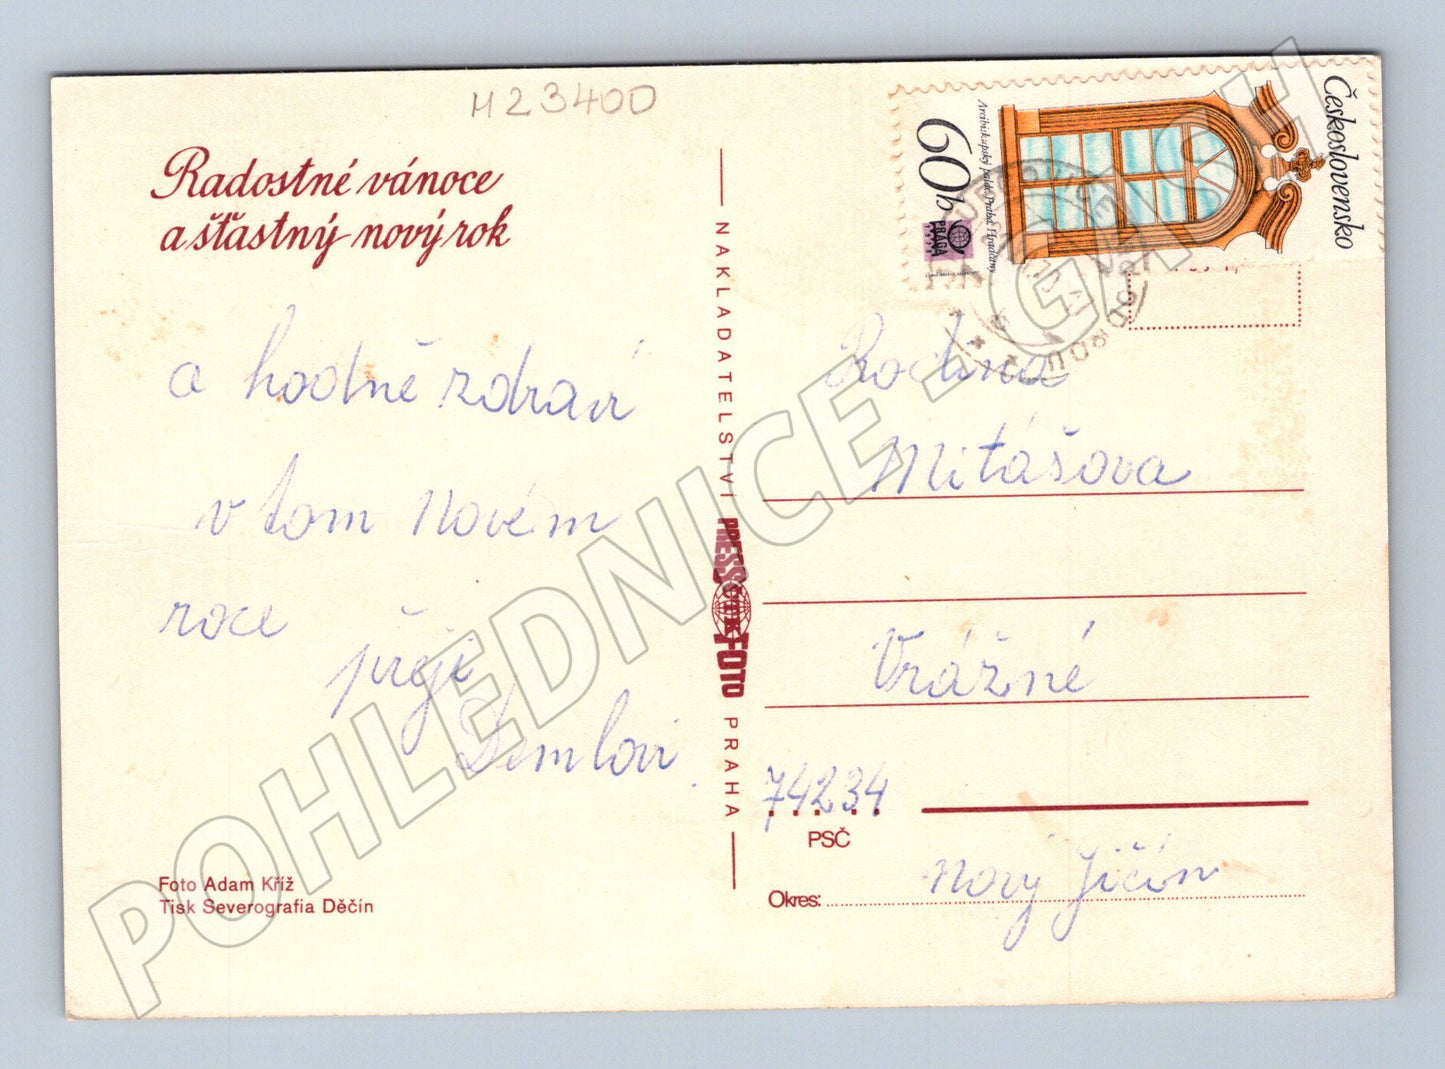 M23400
Radostné vánoce
a šťastný nový rok
a hodně zdraví
v tom Novém
roce
přejí
Demlovi
Foto Adam Kříž
Tisk Severografia Děčín
NAKLADATELSTVÍ PRESSFOTO PRAHA
ČTK
Československo
60h
Arcibiskupský palác Praha Hradčany
PRAGA
1978
Rodina
Mitášova
Vrážné
74234
PSČ
Okres: Nový Jičín
POHLEDNICE - CASH